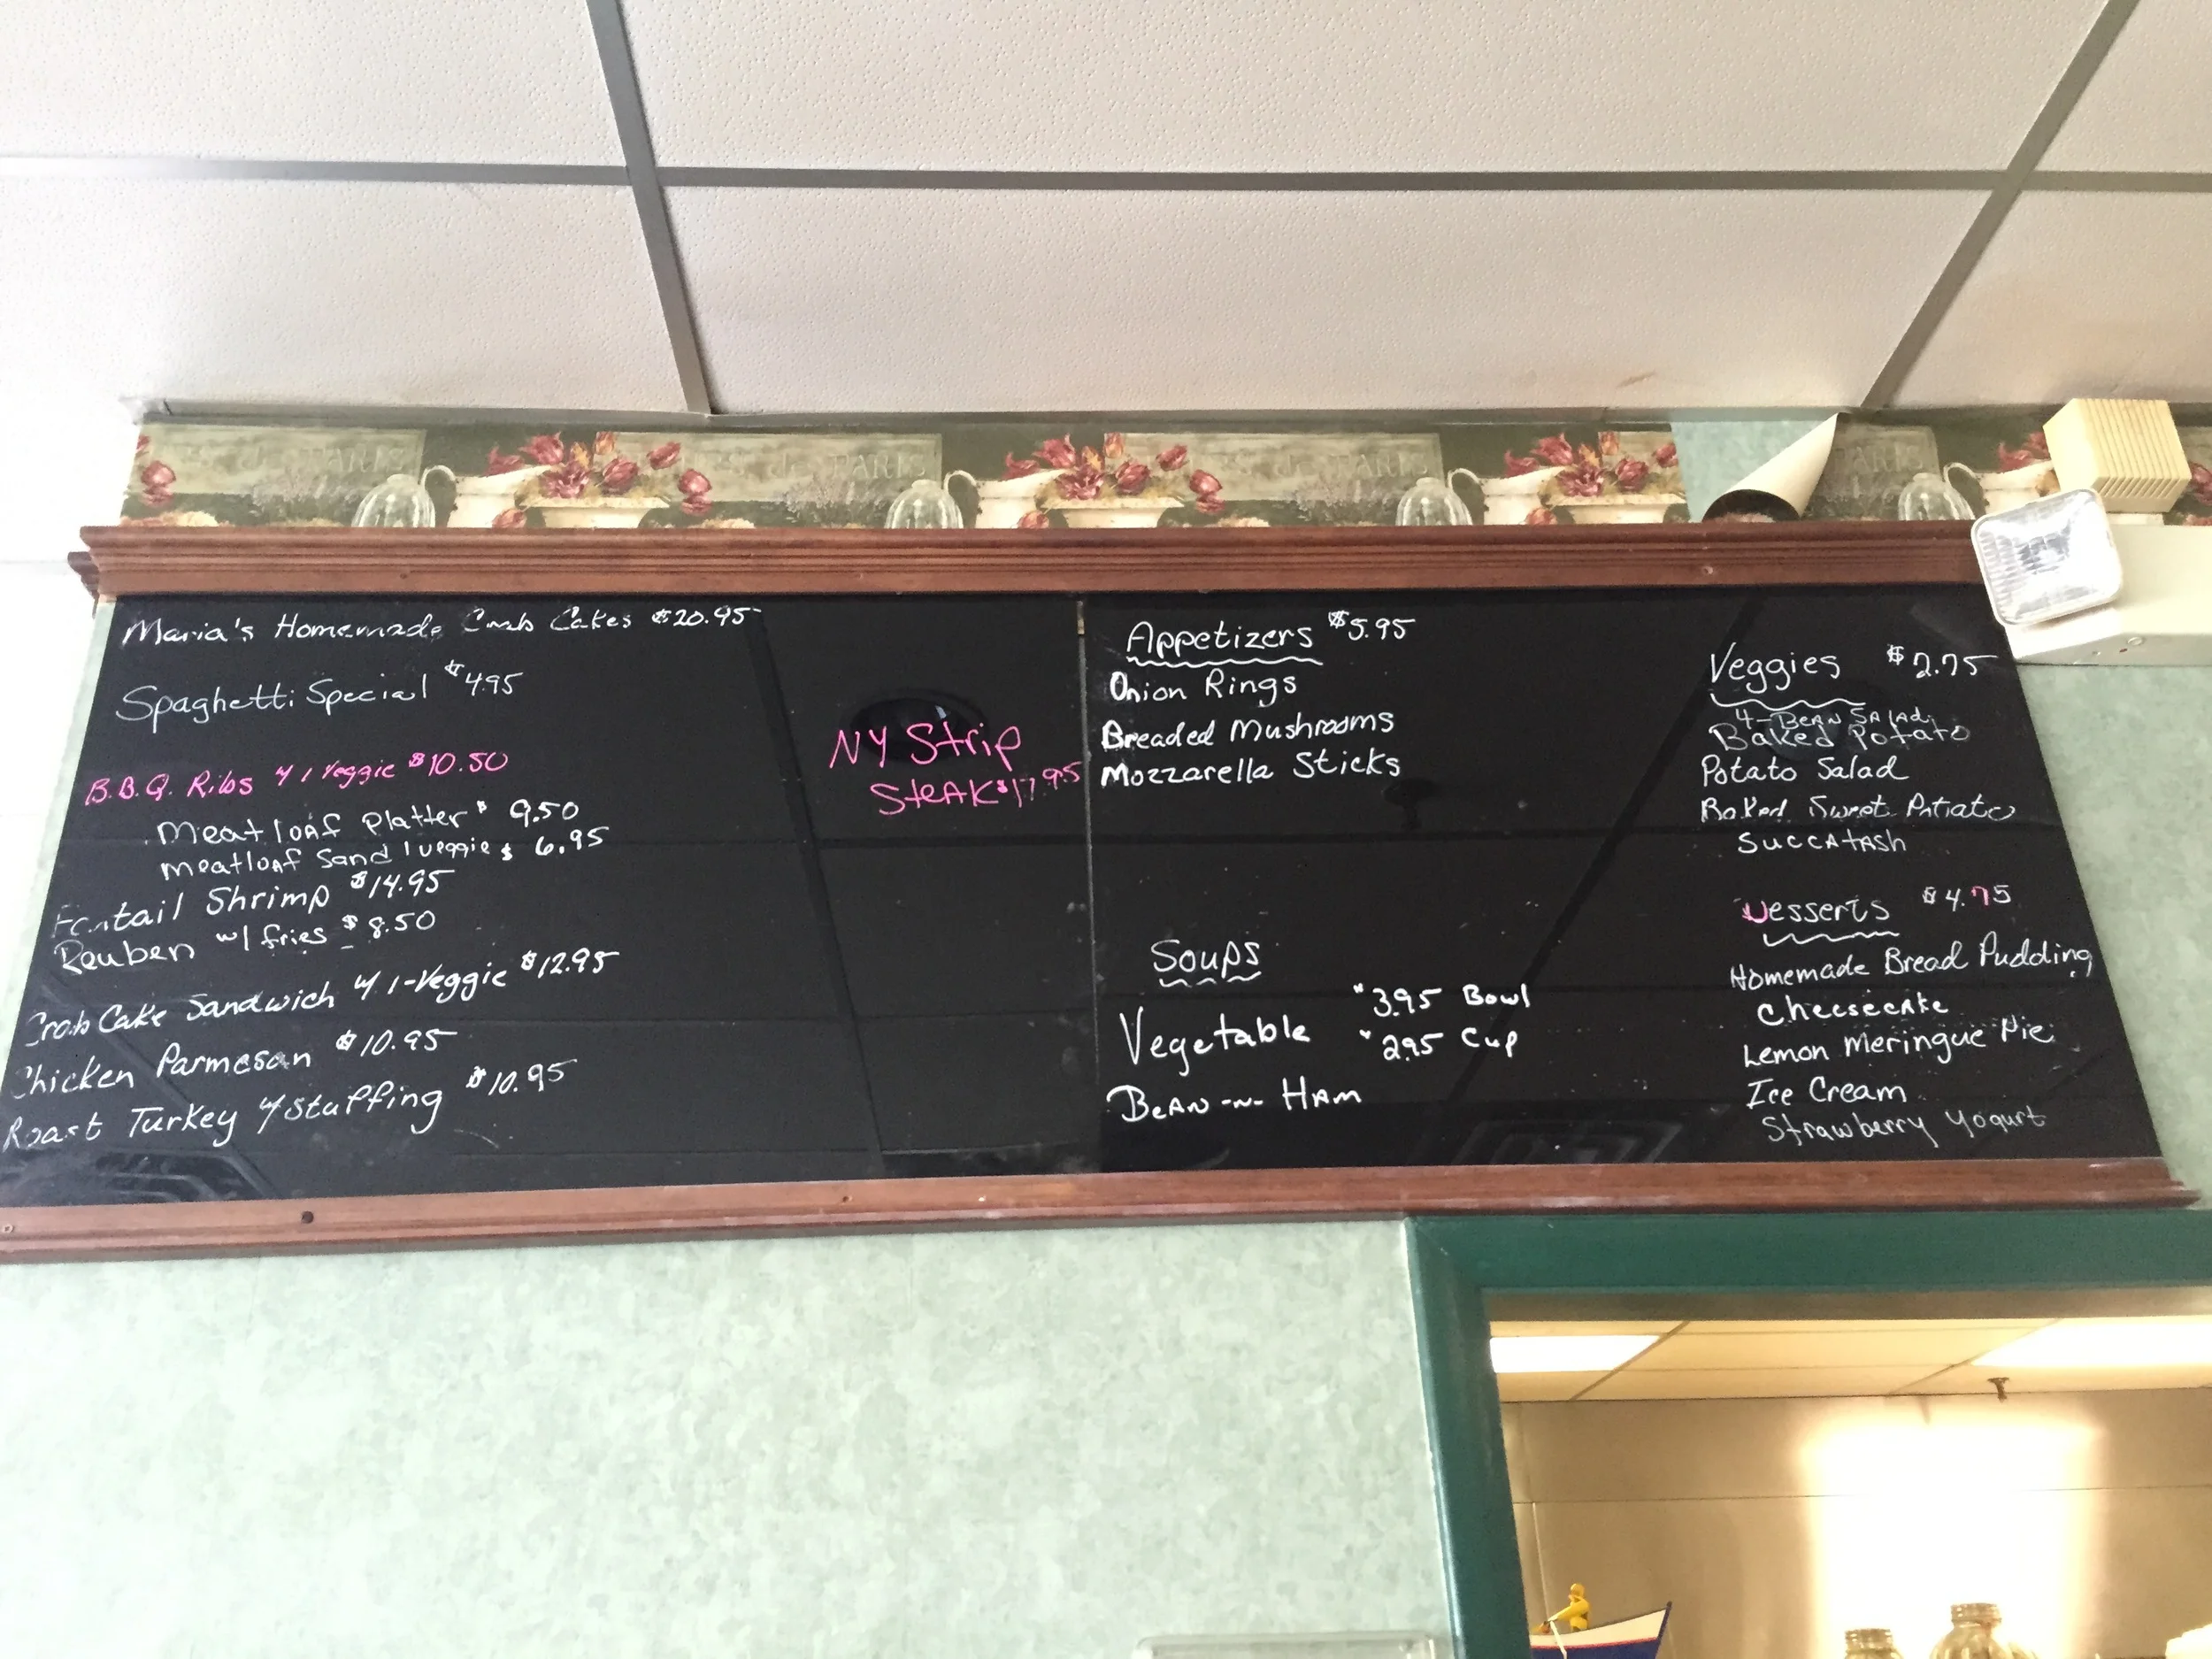 Maria's Homemade Crab Cakes $20.95
Spaghetti Special $4.95
B.B.Q. Ribs w/ 1 Veggie $10.50
Meatloaf Platter $ 9.50
Meatloaf Sand 1 veggie $ 6.95
Fantail Shrimp $14.95
Reuben w/ fries $8.50
Crab Cake Sandwich w/ 1-Veggie $12.95
Chicken Parmesan $10.95
Roast Turkey w/ Stuffing $10.95
NY Strip
Steak $17.95
Appetizers $5.95
Onion Rings
Breaded Mushrooms
Mozzarella Sticks
Soups
Vegetable
$3.95 Bowl
$2.95 Cup
Bean-n-Ham
Veggies $2.75
4-Bean Salad
Baked Potato
Potato Salad
Baked Sweet Potato
Succatash
Desserts $4.75
Homemade Bread Pudding
Cheesecake
Lemon Meringue Pie
Ice Cream
Strawberry Yogurt